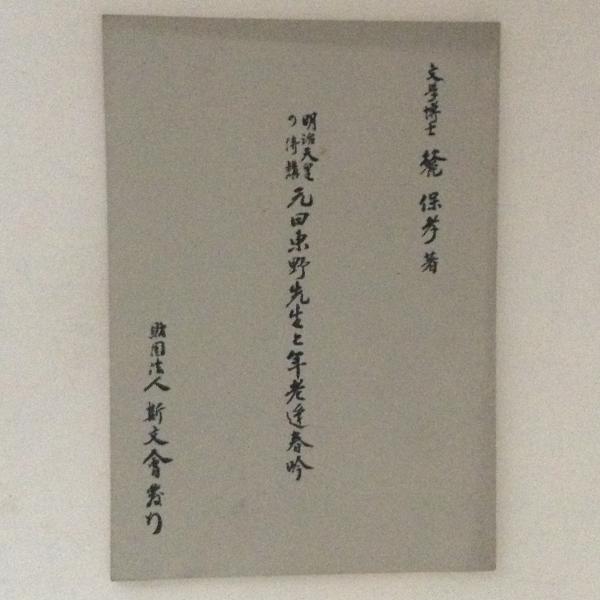 文学博士 麓 保孝 著
明治天皇の侍講 元田東野先生と年老逢春吟
財団法人 斯文會發行